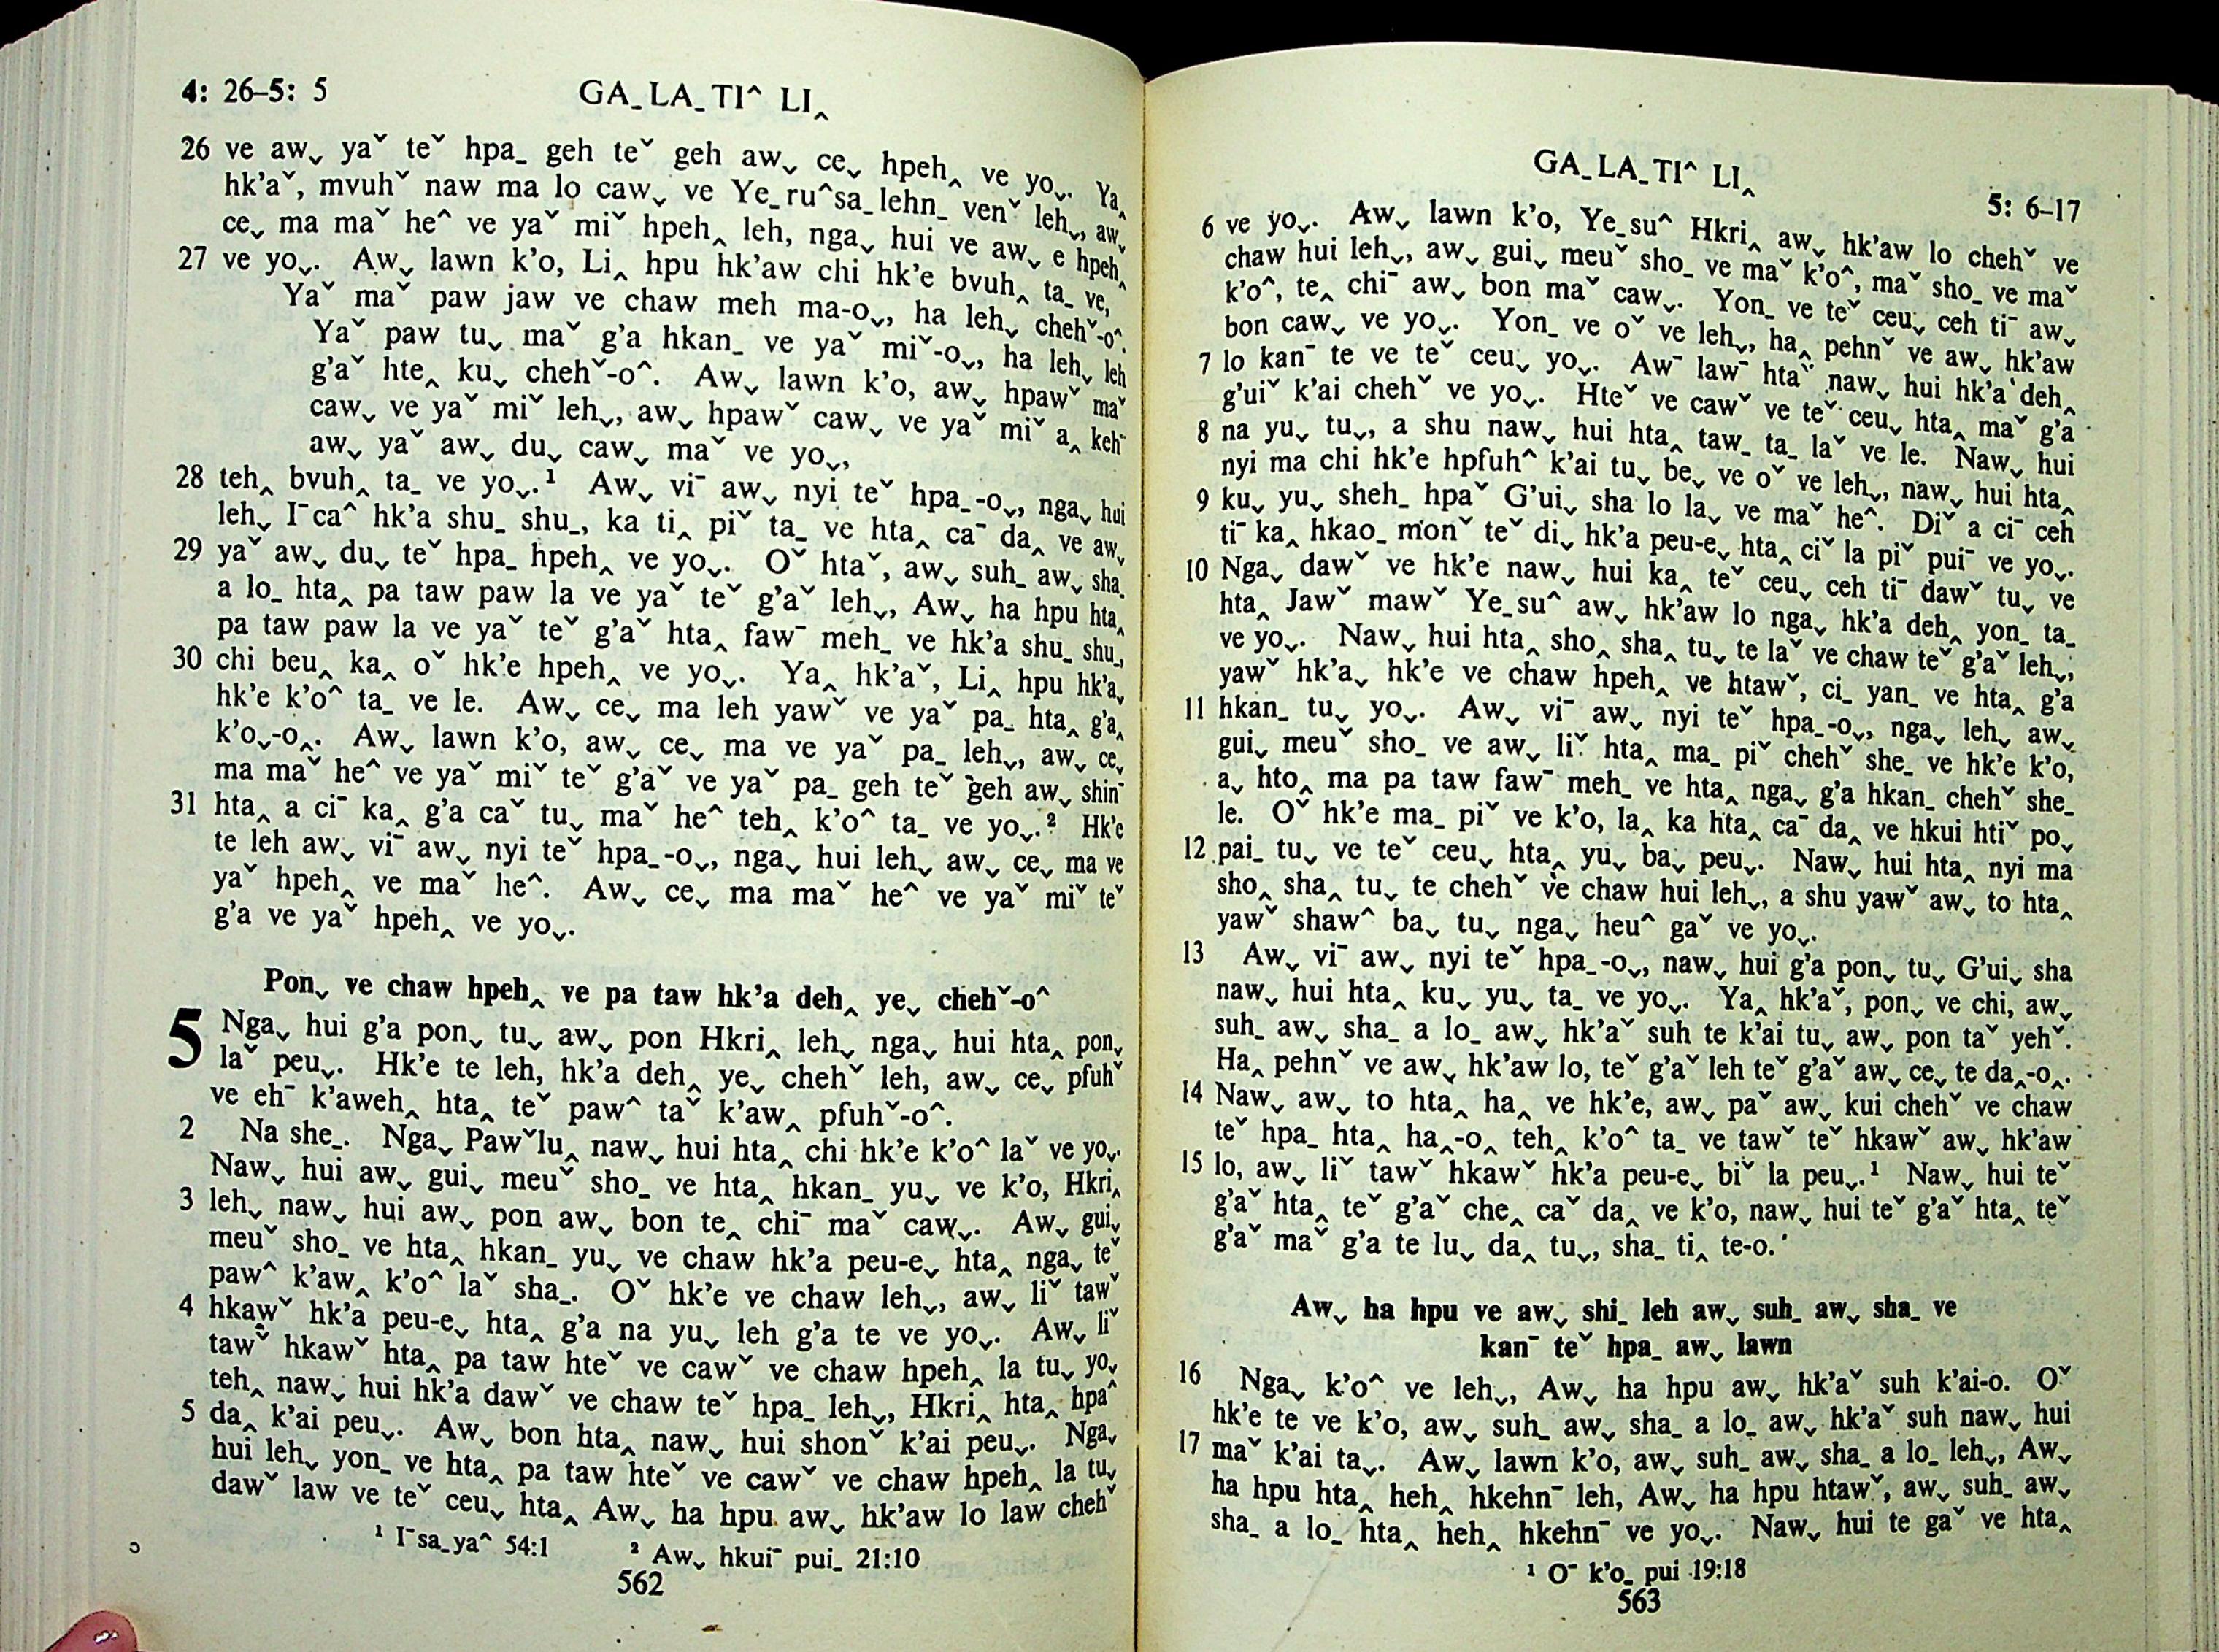 4: 26–5: 5
GA_ LA_ TI^ LI‸
26 ve awˬ yaˇ teˇ hpa_ geh teˇ geh awˬ ceˬ hpeh‸ ve yoˬ. Ya‸
hk’aˇ, mvuhˇ naw ma lo cawˬ ve Ye_ru^sa_lehn_ venˇ lehˬ, awˬ
ceˬ ma maˇ he^ ve yaˇ miˇ hpeh‸ leh, ngaˬ hui ve awˬ e hpeh‸
27 ve yoˬ. Awˬ lawn k’o, Li‸ hpu hk’aw chi hk’e bvuh‸ ta_ ve,
Yaˇ maˇ paw jaw ve chaw meh ma-oˬ, ha lehˬ chehˇ-o^.
Yaˇ paw tuˬ maˇ g’a hkan_ ve yaˇ miˇ-oˬ, ha lehˬ leh
g’aˇ hte‸ kuˬ chehˇ-o^. Awˬ lawn k’o, awˬ hpawˇ maˇ
cawˬ ve yaˇ miˇ lehˬ, awˬ hpawˇ cawˬ ve yaˇ miˇ a‸ kehˉ
awˬ yaˇ awˬ duˬ cawˬ maˇ ve yoˬ,
28 teh‸ bvuh‸ ta_ ve yoˬ.¹ Awˬ viˉ awˬ nyi teˇ hpa_-oˬ, ngaˬ hui
lehˬ Iˉca^ hk’a shu_ shu_, ka ti‸ piˇ ta_ ve hta‸ caˉ da‸ ve awˬ
29 yaˇ awˬ duˬ teˇ hpa_ hpeh‸ ve yoˬ. Oˇ htaˇ, awˬ suh_ awˬ sha_
a lo_ hta‸ pa taw paw la ve yaˇ teˇ g’aˇ lehˬ, Awˬ ha hpu hta‸
pa taw paw la ve yaˇ teˇ g’aˇ hta‸ fawˉ meh_ ve hk’a shu_ shu_,
30 chi beu‸ ka‸ oˇ hk’e hpeh‸ ve yoˬ. Ya‸ hk’aˇ, Li‸ hpu hk’aˬ
hk’e k’o^ ta_ ve le. Awˬ ceˬ ma leh yawˇ ve yaˇ pa_ hta‸ g’a‸
k’oˬ-o‸. Awˬ lawn k’o, awˬ ceˬ ma ve yaˇ pa_ lehˬ, awˬ ceˬ
ma maˇ he^ ve yaˇ miˇ teˇ g’aˇ ve yaˇ pa_ geh teˇ geh awˬ shinˉ
31 hta‸ a ciˉ ka‸ g’a caˇ tuˬ maˇ he^ teh‸ k’o^ ta_ ve yoˬ.² Hk’e
te leh awˬ viˉ awˬ nyi teˇ hpa_-oˬ, ngaˬ hui lehˬ awˬ ceˬ ma ve
yaˇ hpeh‸ ve maˇ he^. Awˬ ceˬ ma maˇ he^ ve yaˇ miˇ teˇ
g’a ve yaˇ hpeh‸ ve yoˬ.
Ponˬ ve chaw hpeh‸ ve pa taw hk’a deh‸ yeˬ chehˇ-o^
5 Ngaˬ hui g’a ponˬ tuˬ awˬ pon Hkri‸ lehˬ ngaˬ hui hta‸ ponˬ
laˇ peuˬ. Hk’e te leh, hk’a deh‸ yeˬ chehˇ leh, awˬ ceˬ pfuhˇ
ve ehˉ k’aweh‸ hta‸ teˇ paw^ taˇ k’aw‸ pfuhˇ-o^.
2 Na she_. Ngaˬ Pawˇlu‸ naw‸ hui hta‸ chi hk’e k’o^ laˇ ve yoˬ.
Nawˬ hui awˬ guiˬ meuˇ sho_ ve hta‸ hkan_ yuˬ ve k’o, Hkri‸
3 lehˬ nawˬ hui awˬ pon awˬ bon te‸ chiˉ maˇ cawˬ. Awˬ guiˬ
meuˇ sho_ ve hta‸ hkan_ yuˬ ve chaw hk’a peu-eˬ hta‸ ngaˬ teˇ
paw^ k’aw‸ k’o^ laˇ sha_. Oˇ hk’e ve chaw lehˬ, awˬ liˇ tawˇ
4 hkawˇ hk’a peu-eˬ hta‸ g’a na yuˬ leh g’a te ve yoˬ. Awˬ liˇ
tawˇ hkawˇ hta‸ pa taw hteˇ ve cawˇ ve chaw hpeh‸ la tuˬ yoˬ
teh‸ nawˬ hui hk’a dawˇ ve chaw teˇ hpa_ lehˬ, Hkri‸ hta‸ hpa^
5 da‸ k’ai peuˬ. Awˬ bon hta‸ nawˬ hui shonˇ k’ai peuˬ. Ngaˬ
hui lehˬ yon_ ve hta‸ pa taw hteˇ ve cawˇ ve chaw hpeh‸ la tuˬ
dawˇ law ve teˇ ceuˬ hta‸ Awˬ ha hpu awˬ hk’aw lo law chehˇ
¹ Iˉsa_ya^ 54:1 ² Awˬ hkuiˉ pui_ 21:10
562
GA_ LA_ TI^ LI‸
5: 6–17
6 ve yoˬ. Awˬ lawn k’o, Ye_su^ Hkri‸ awˬ hk’aw lo chehˇ ve
chaw hui lehˬ, awˬ guiˬ meuˇ sho_ ve maˇ k’o^, maˇ sho_ ve maˇ
k’o^, te‸ chiˉ awˬ bon maˇ cawˬ. Yon_ ve teˇ ceuˬ ceh tiˉ awˬ
bon cawˬ ve yoˬ. Yon_ ve oˇ ve lehˬ, ha‸ pehnˇ ve awˬ hk’aw
7 lo kanˉ te ve teˇ ceuˬ yoˬ. Awˉ lawˉ htaˇ nawˬ hui hk’a deh‸
g’uiˇ k’ai chehˇ ve yoˬ. Hteˇ ve cawˇ ve teˇ ceuˬ hta‸ maˇ g’a
8 na yuˬ tuˬ, a shu nawˬ hui hta‸ taw_ ta_ laˇ ve le. Nawˬ hui
nyi ma chi hk’e hpfuh^ k’ai tuˬ beˬ ve oˇ ve lehˬ, nawˬ hui hta‸
9 kuˬ yuˬ sheh_ hpaˇ G’uiˬ sha lo laˬ ve maˇ he^. Diˇ a ciˉ ceh
tiˉ ka‸ hkao_ monˇ teˇ diˬ hk’a peu-eˬ hta‸ ciˇ la piˇ puiˉ ve yoˬ.
10 Ngaˬ dawˇ ve hk’e nawˬ hui ka‸ teˇ ceuˬ ceh tiˉ dawˇ tuˬ ve
hta‸ Jawˇ mawˇ Ye_su^ awˬ hk’aw lo ngaˬ hk’a deh‸ yon_ ta_
ve yoˬ. Nawˬ hui hta‸ sho‸ sha‸ tuˬ te laˇ ve chaw teˇ g’aˇ lehˬ,
yawˇ hk’aˬ hk’e ve chaw hpeh‸ ve htawˇ, ci_ yan_ ve hta‸ g’a
11 hkan_ tuˬ yoˬ. Awˬ viˉ awˬ nyi teˇ hpa_-oˬ, ngaˬ lehˬ awˬ
guiˬ meuˇ sho_ ve awˬ liˇ hta‸ ma_ piˇ chehˇ she_ ve hk’e k’o,
aˬ hto‸ ma pa taw fawˉ meh_ ve hta‸ ngaˬ g’a hkan_ chehˇ she_
le. Oˇ hk’e ma_ piˇ ve k’o, la‸ ka hta‸ caˉ da‸ ve hkui htiˇ poˬ
12 pai_ tuˬ ve teˇ ceuˬ hta‸ yuˬ baˬ peuˬ. Nawˬ hui hta‸ nyi ma
sho‸ sha‸ tuˬ te chehˇ ve chaw hui lehˬ, a shu yawˇ awˬ to hta‸
yawˇ shaw^ baˬ tuˬ ngaˬ heu^ gaˇ ve yoˬ.
13 Awˬ viˉ awˬ nyi teˇ hpa_-oˬ, nawˬ hui g’a ponˬ tuˬ G’uiˬ sha
nawˬ hui hta‸ kuˬ yuˬ ta_ ve yoˬ. Ya‸ hk’aˇ, ponˬ ve chi, awˬ
suh_ awˬ sha_ a lo_ awˬ hk’aˇ suh te k’ai tuˬ awˬ pon taˇ yehˇ.
Ha‸ pehnˇ ve awˬ hk’aw lo, teˇ g’aˇ leh teˇ g’aˇ awˬ ceˬ te da‸-o‸.
14 Nawˬ awˬ to hta‸ ha‸ ve hk’e, awˬ paˇ awˬ kui chehˇ ve chaw
teˇ hpa_ hta‸ ha‸-o‸ teh‸ k’o^ ta_ ve tawˇ teˇ hkawˇ awˬ hk’aw
15 lo, awˬ liˇ tawˇ hkawˇ hk’a peu-eˬ biˇ la peuˬ.¹ Nawˬ hui teˇ
g’aˇ hta‸ teˇ g’aˇ che‸ caˇ da‸ ve k’o, nawˬ hui teˇ g’aˇ hta‸ teˇ
g’aˇ maˇ g’a te luˬ da‸ tuˬ, sha_ ti‸ te-o.
Awˬ ha hpu ve awˬ shi_ leh awˬ suh_ awˬ sha_ ve
kanˉ teˇ hpa_ awˬ lawn
16 Ngaˬ k’o^ ve lehˬ, Awˬ ha hpu awˬ hk’aˇ suh k’ai-o. Oˇ
hk’e te ve k’o, awˬ suh_ awˬ sha_ a lo_ awˬ hk’aˇ suh nawˬ hui
17 maˇ k’ai taˬ. Awˬ lawn k’o, awˬ suh_ awˬ sha_ a lo_ lehˬ, Awˬ
ha hpu hta‸ heh‸ hkehnˉ leh, Awˬ ha hpu htawˇ, awˬ suh_ awˬ
sha_ a lo_ hta‸ heh‸ hkehnˉ ve yoˬ. Nawˬ hui te gaˇ ve hta‸
¹ Oˉ k’o_ pui 19:18
563